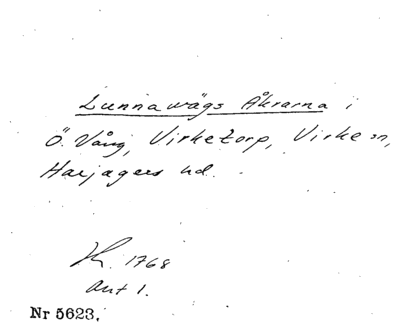 Lunnawägs Åkrarna i
Ö. Vång, Virketorp, Virke sn,
Harjagers hd.
Kr. 1768
Ant 1.
Nr 5623.